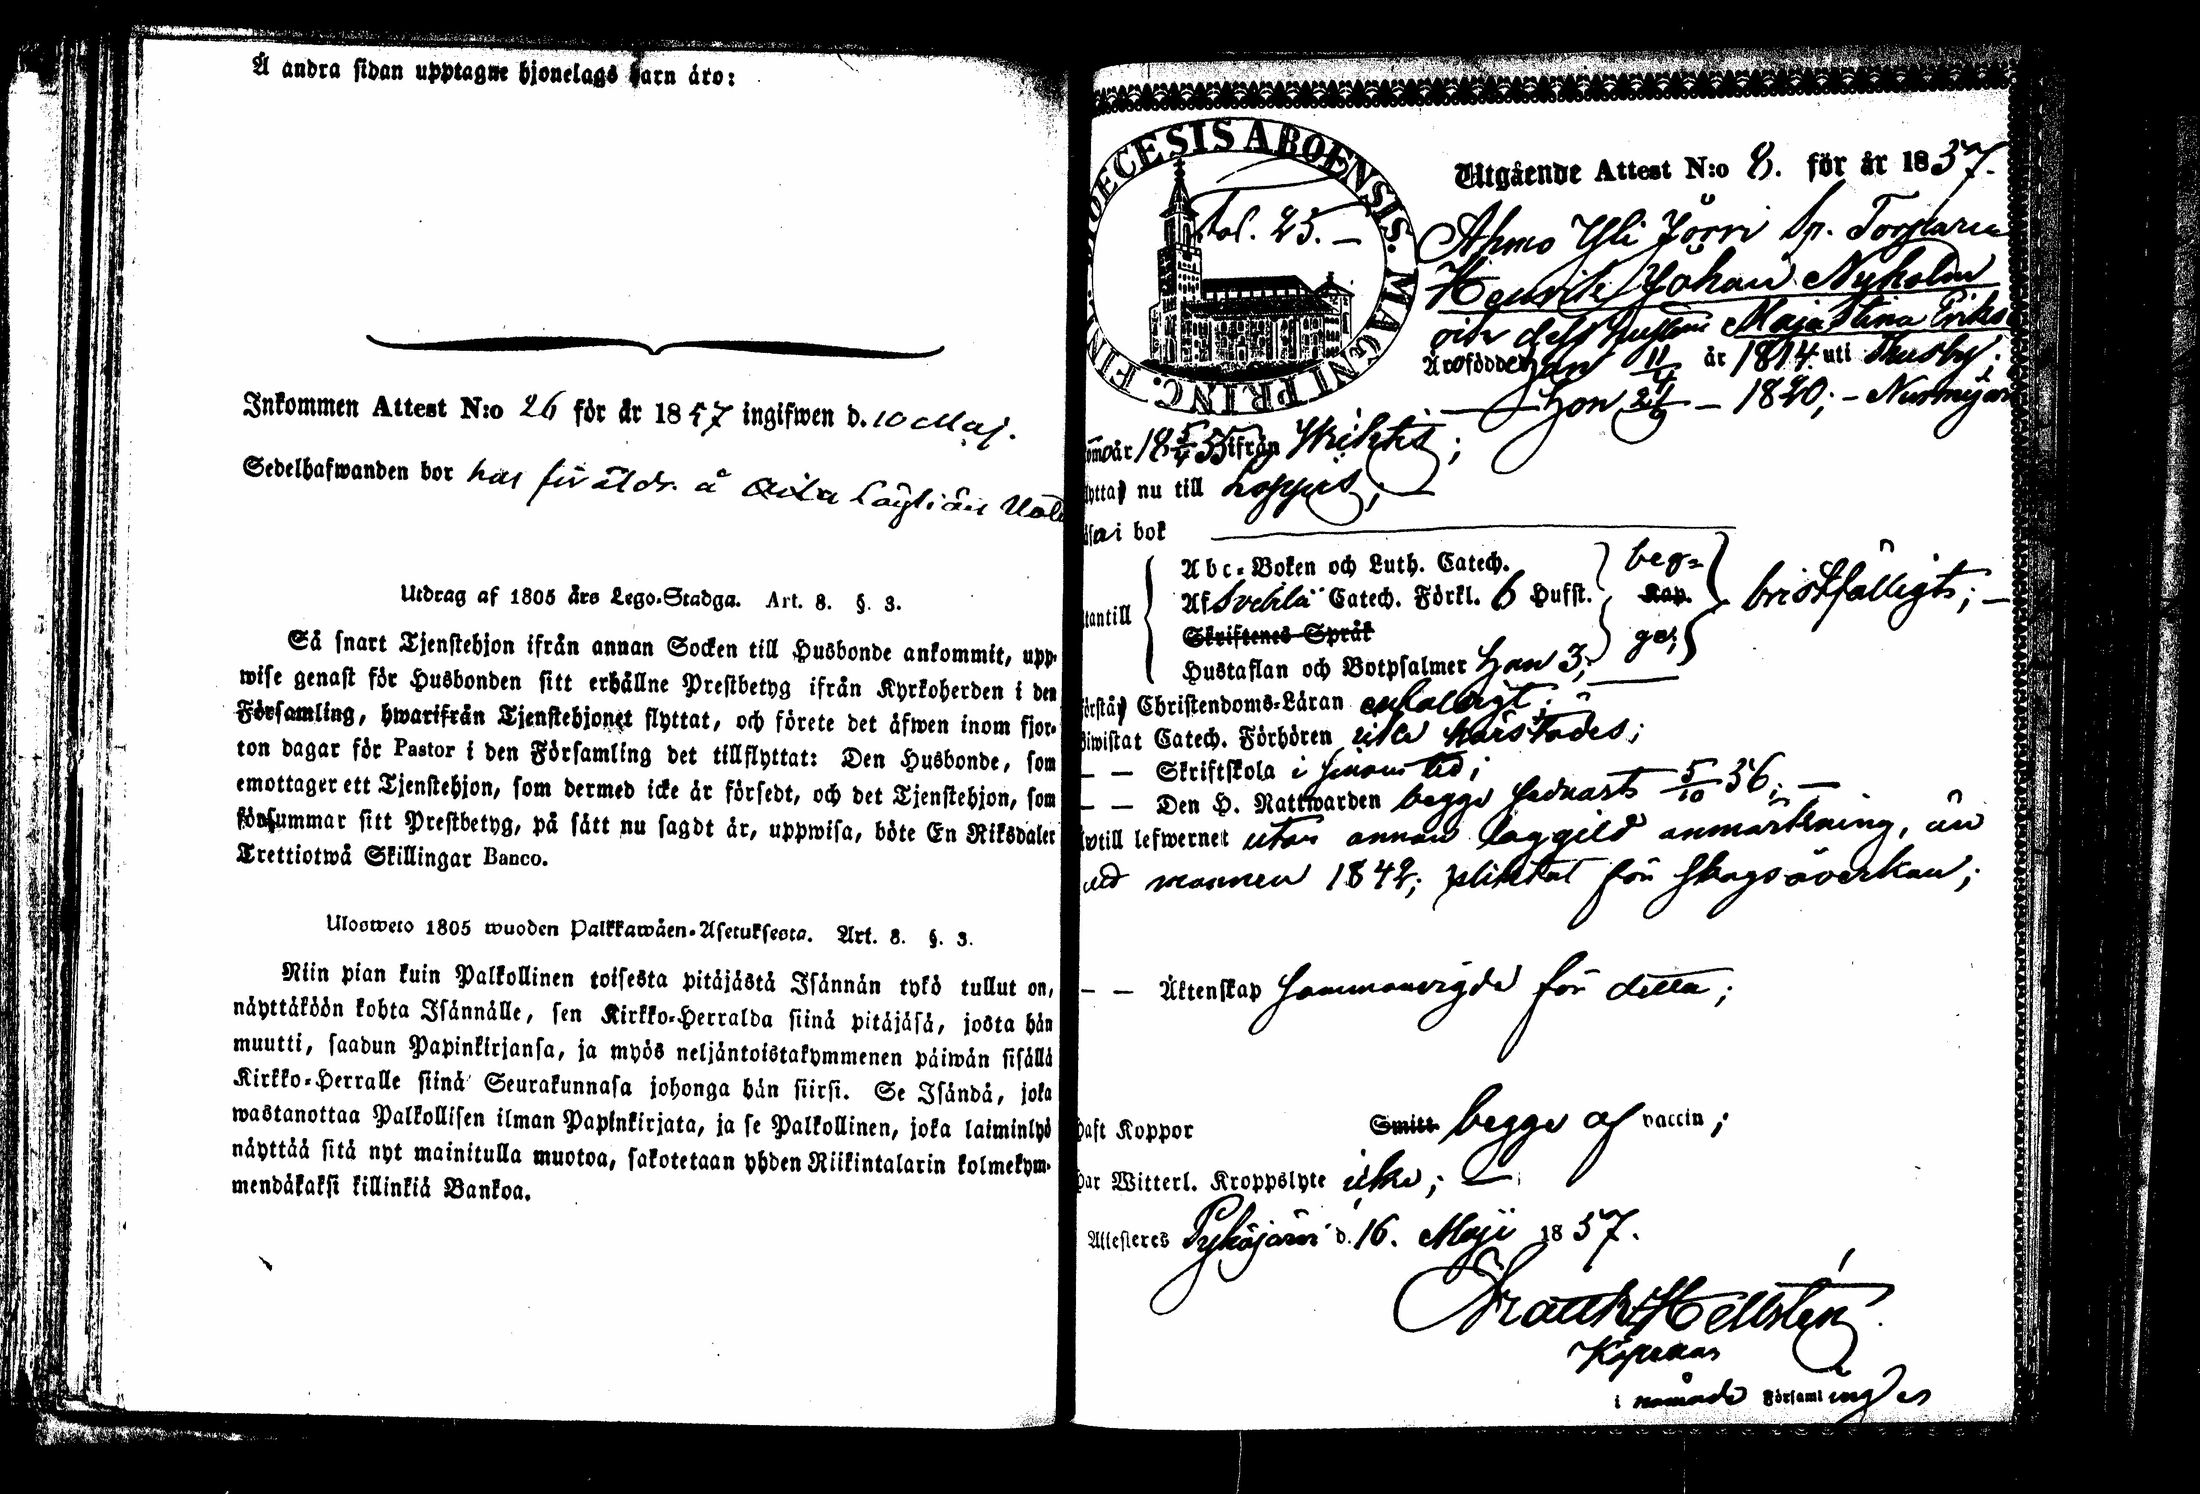 Å andra sidan upptagne hjonelags barn äro:
Inkommen Attest N:o 26 för år 1857 ingifwen d. 10 Maj.
Sedelhafwanden bor hos föräldr. å
Utdrag af 1805 års Lego-Stadga. Art. 8. §. 3.
Så snart Tjenstehjon ifrån annan Socken till Husbonde ankommit, upp-
wise genast för Husbonden sitt erhållne Prestbetyg ifrån Kyrkoherden i den
Församling, hwarifrån Tjenstehjonet flyttat, och förete det äfwen inom fjor-
ton dagar för Pastor i den Församling det tillflyttat: Den Husbonde, som
emottager ett Tjenstehjon, som dermed icke är försedt, och det Tjenstehjon, som
försummar sitt Prestbetyg, på sätt nu sagdt är, uppwisa, böte En Riksdaler
Trettiotwå Skillingar Banco.
Ulosweto 1805 wuoden Palkkawäen-Asetuksesta. Art. 8. §. 3.
Niin pian kuin Palkollinen toisesta pitäjästä Isännän tykö tullut on,
näyttäköön kohta Isännälle, sen Kirkko-Herralda siinä pitäjäsä, josta hän
muutti, saadun Papinkirjansa, ja myös neljäntoistakymmenen päiwän sisällä
Kirkko-Herralle siinä Seurakunnasa johonga hän siirsi. Se Isändä, joka
wastanottaa Palkollisen ilman Papinkirjata, ja se Palkollinen, joka laiminlyö
näyttää sitä nyt mainitulla muotoa, sakotetaan yhden Riikintalarin kolmekym-
mendäkaksi killinkiä Bankoa.
DIOECESIS ABOENSIS. MAGNI PRINC. FINL.
Fol. 25. —
Utgående Attest N:o 8. för år 1857.
Ahmo Yli Jörri Sp. Torparen
Henrik Johan Nyholm
och dess hustru Maja Stina Eriks
Äro födde han 11/4 år 1814 uti Thusby;
— Hon — 1820; — Nurmijär
år 18 5/4 55 ifrån Wichtis;
nu till Loppis; —
i bok
Abc-Boken och Luth. Catech. beg-
Af Svebilii Catech. Förkl. 6 Hufst. Kap. bristfälligt; —
Skriftenes Språk
Hustaflan och Botpsalmer han 3; ge;
Christendoms-Läran enfaldigt;
Catech. Förhören icke härstädes;
— — Skriftskola i sinom tid;
— — Den H. Nattwarden begge sednast 5/10 56; —
till lefwernet utan annan laggild anmärkning, än
mannen 1842; pliktat för skogsåverkan;
— — Äktenskap sammanvigde för detta;
haft Koppor Smitt begge af vaccin;
har Witterl. Kroppslyte icke; —
Attesteres Pyhäjärvi d. 16. Maji 1857.
Hellstén
Kapellan
i nämnde Församlingar